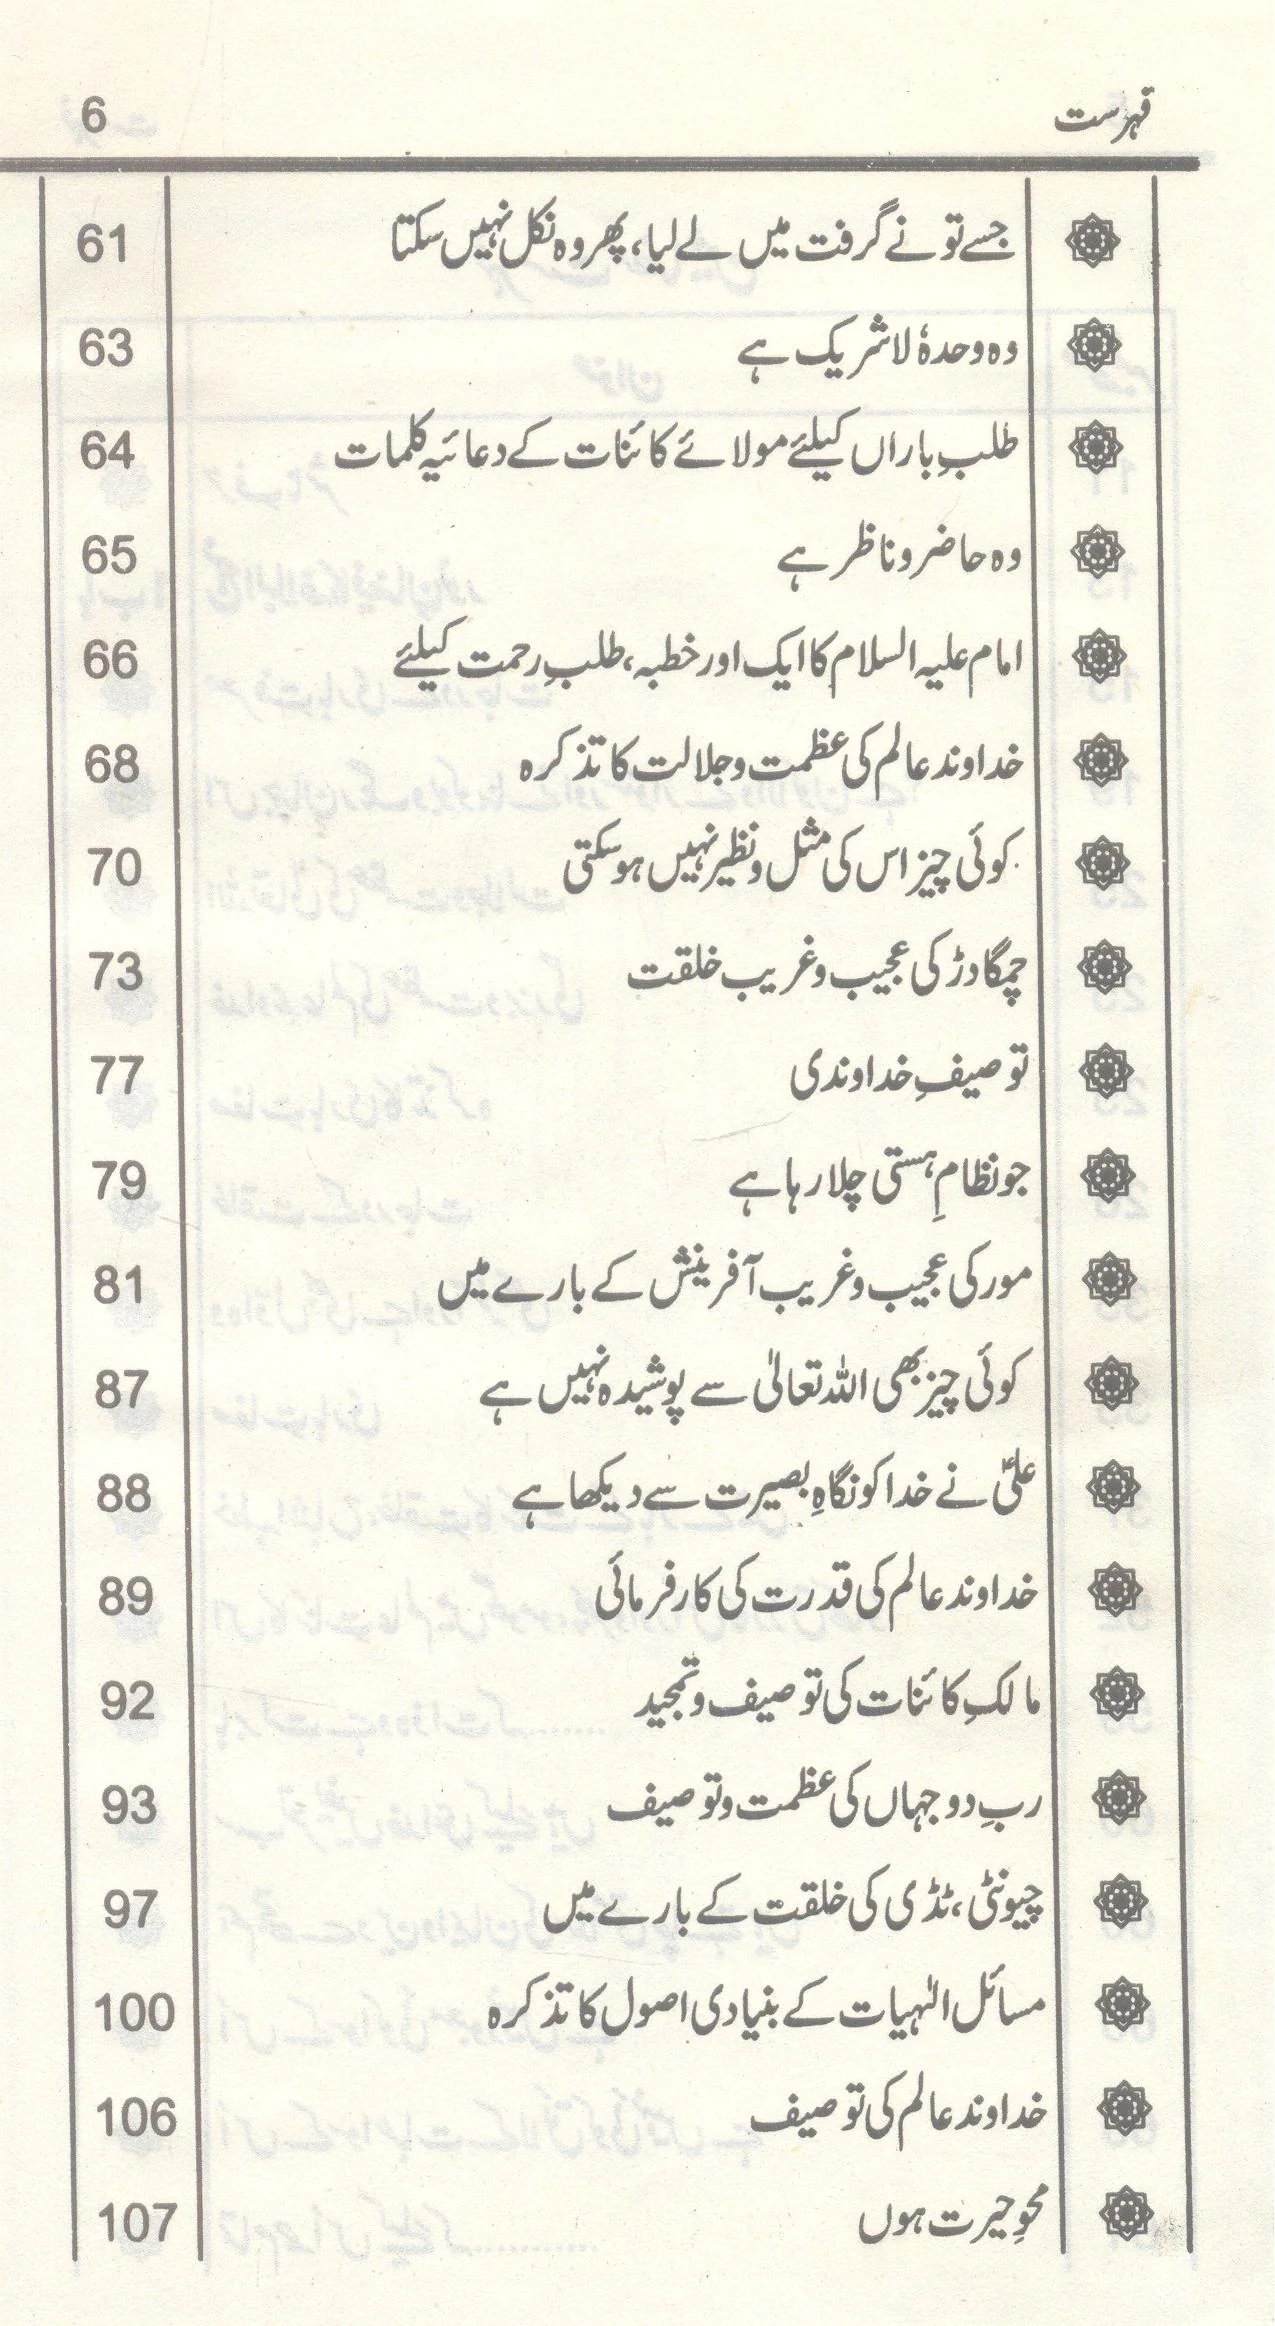 فہرست 6
جسے تو نے گرفت میں لے لیا، پھر وہ نکل نہیں سکتا 61
وہ وحدہٗ لا شریک ہے 63
طلبِ باراں کیلئے مولائے کائنات کے دعائیہ کلمات 64
وہ حاضر و ناظر ہے 65
امام علیہ السلام کا ایک اور خطبہ، طلبِ رحمت کیلئے 66
خداوند عالم کی عظمت و جلالت کا تذکرہ 68
کوئی چیز اس کی مثل و نظیر نہیں ہو سکتی 70
چمگادڑ کی عجیب و غریب خلقت 73
توصیفِ خداوندی 77
جو نظامِ ہستی چلا رہا ہے 79
مور کی عجیب و غریب آفرینش کے بارے میں 81
کوئی چیز بھی اللہ تعالیٰ سے پوشیدہ نہیں ہے 87
علیؑ نے خدا کو نگاہِ بصیرت سے دیکھا ہے 88
خداوند عالم کی قدرت کی کارفرمائی 89
مالکِ کائنات کی توصیف و تمجید 92
ربِ دو جہاں کی عظمت و توصیف 93
چیونٹی، ٹڈی کی خلقت کے بارے میں 97
مسائل الٰہیات کے بنیادی اصول کا تذکرہ 100
خداوند عالم کی توصیف 106
محوِ حیرت ہوں 107